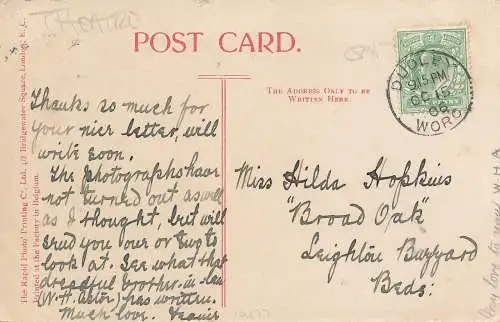 THEATRE
POST CARD.
THE ADDRESS ONLY TO BE
WRITTEN HERE.
DUDLEY
9.15 PM
OC 15
06
WORC
Thanks so much for
your nice letter, will
write soon.
The photographs have
not turned out as well
as I thought, but will
send you one or two to
look at. See what that
dreadful brother-in-law
(W.H. actor) has written.
Much love.
Miss Hilda Hopkins
"Broad Oak"
Leighton Buzzard
Beds:
The Rapid Photo Printing Co., Ltd., 1/3 Bridgewater Square, London, E.C.
Printed at the Factory in Belgium.